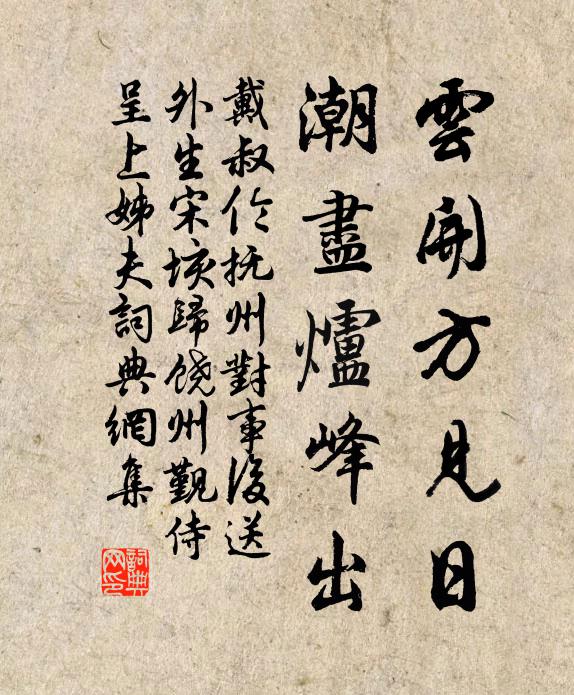 雲開方見日
潮盡爐峰出
戴叔伦抚州對事後送
外生宋垓歸饶州覲侍
呈上姊夫詞典網集
詞典网印